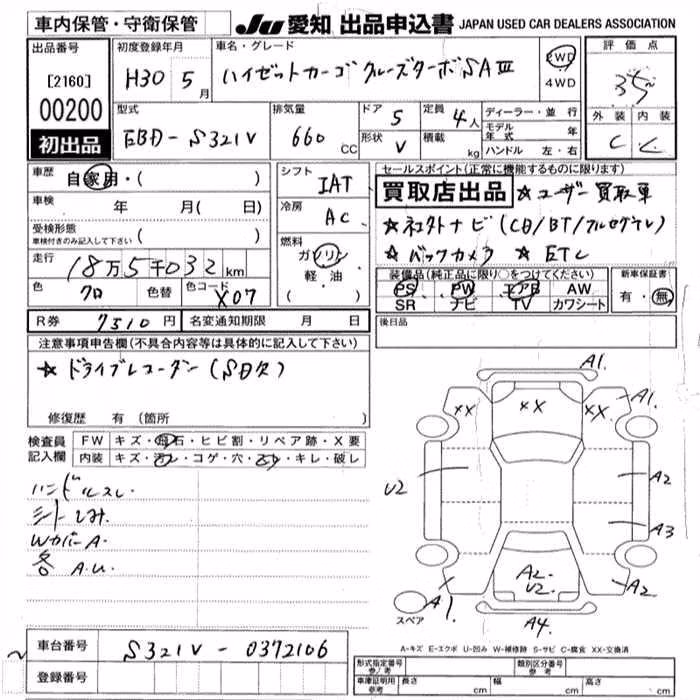 車内保管・守衛保管
JU 愛知 出品申込書 JAPAN USED CAR DEALERS ASSOCIATION
出品番号
[2160]
00200
初出品
初度登録年月
H30 5月
車名・グレード
ハイゼットカーゴ クルーズターボSAⅢ
2WD
4WD
評価点
外装 内装
C C
型式
EBD-S321V
排気量
660 CC
ドア 5
定員 4人
形状 V
積載 kg
ディーラー・並行
モデル年式 年
ハンドル 左・右
車歴
自家用・( )
車検 年 月( 日)
受検形態
車検付きのみ記入して下さい ( )
走行
18万5千032km
色 クロ 色替 色コード X07
シフト
IAT
冷房
AC
燃料
ガソリン
軽・油
( )
セールスポイント(正常に機能するものに限ります)
買取店出品 ☆ユーザー買取車
☆コネクトナビ(CD/BT/フルセグTV)
☆バックカメラ ☆ETC
装備品(純正品に限り○をつけてください)
PS PW エアB AW
SR ナビ TV カワシート
新車保証書
有・無
R券 7510円 名変通知期限 月 日
後日品
注意事項申告欄(不具合内容等は具体的に記入して下さい)
☆ドライブレコーダー(SD欠)
修復歴 有(箇所 )
検査員
記入欄
FW キズ・飛石・ヒビ割・リペア跡・X要
内装 キズ・汚レ・コゲ・穴・スレ・キレ・破レ
ハンドルスレ
シートしみ
WカバーA.
各A.U.
A1.
A1.
XX
XX
XX
U2
A2
A3
A2
A2-
U2
A1
A4.
X
スペア
A-キズ E-エクボ U-凹み W-補修跡 S-サビ C-腐食 XX-交換済
車台番号 S321V-0372106
登録番号
形式指定番号
参/考
類別区分番号
参/考
車庫証明用
参考
長さ cm 幅 cm 高さ cm